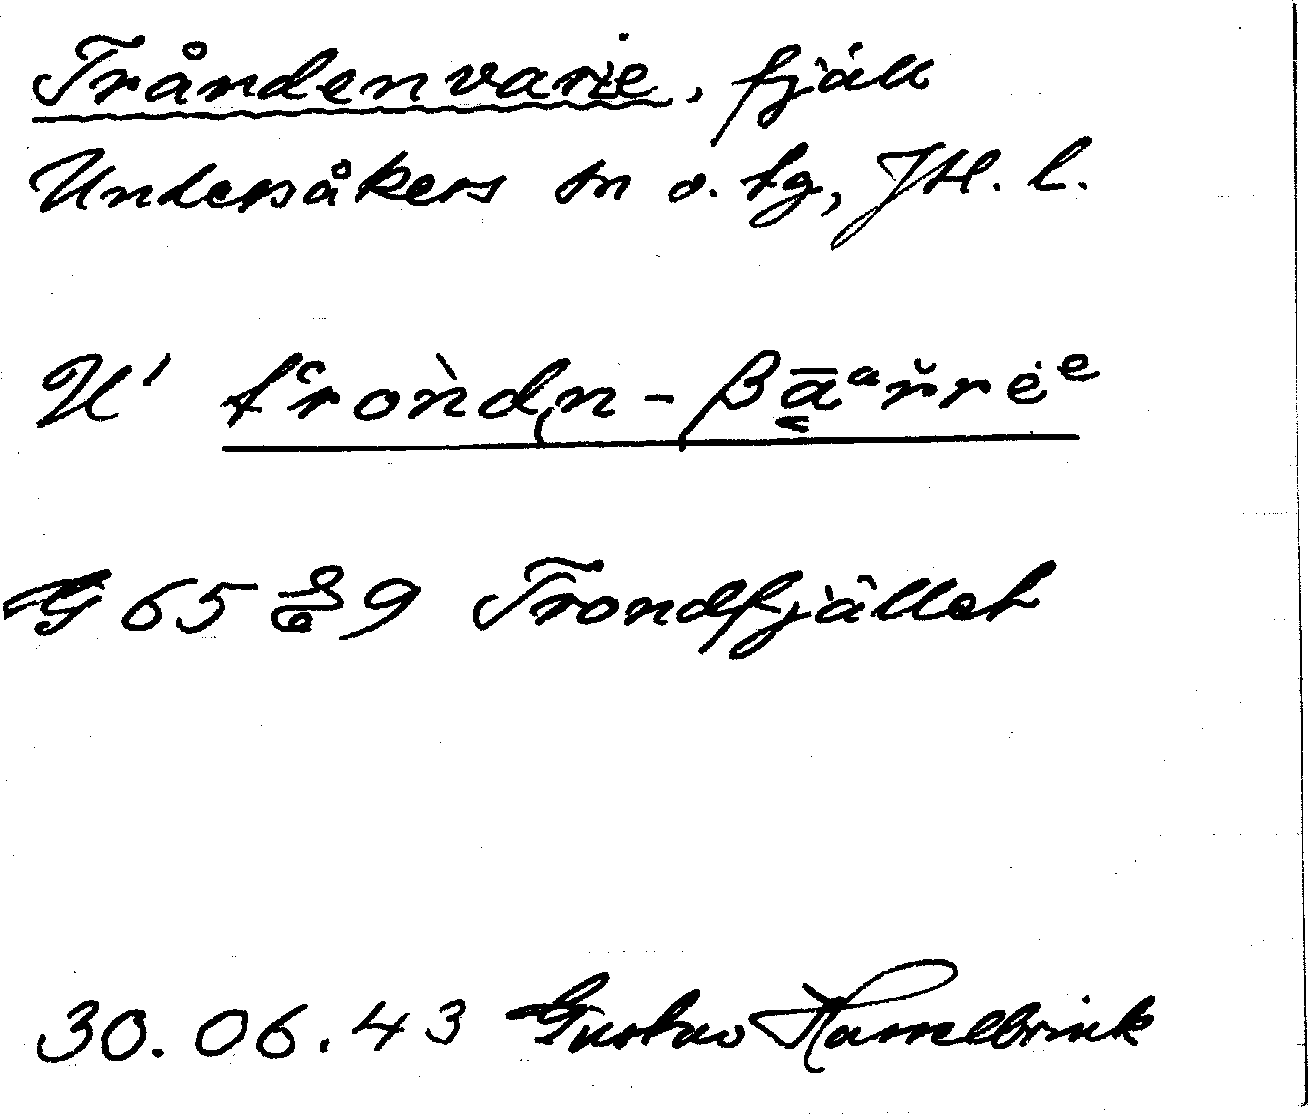 Tråndenvarie, fjäll
Undersåkers sn o. tg, JH. l.
U' trondn-βāᵃřrėᵉ
G 65 9 Trondfjället
30.06.43 Gustav Hasselbrink